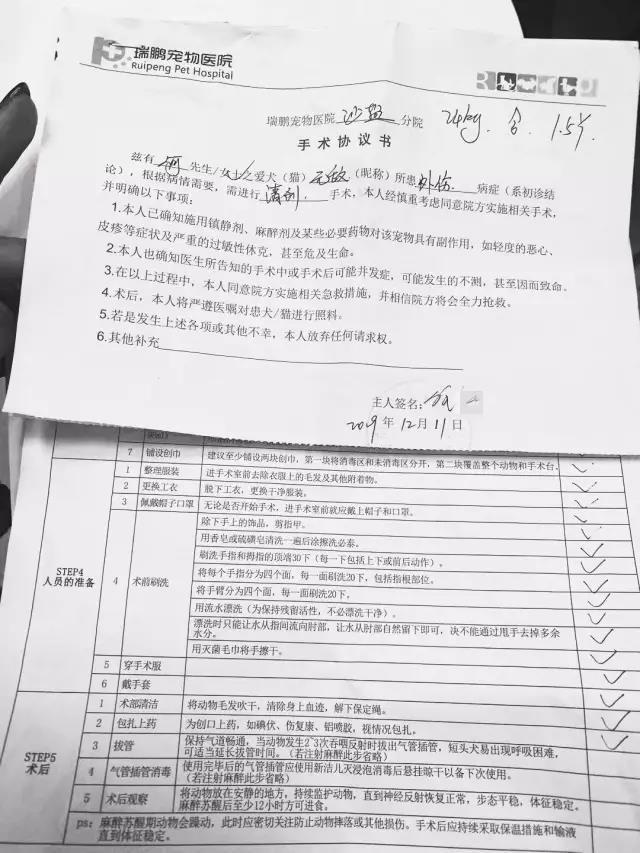 瑞鹏宠物医院
Ruipeng Pet Hospital
瑞鹏宠物医院 沙盐 分院 24kg. 含 1.5岁.
手术协议书
兹有 何 先生/女士之爱犬（猫）无敌（昵称）所患 外伤 病症（系初诊结
论），根据病情需要，需进行 清创. 手术，本人经慎重考虑同意院方实施相关手术，
并明确以下事项：
1.本人已确知施用镇静剂、麻醉剂及某些必要药物对该宠物具有副作用，如轻度的恶心、
皮疹等症状及严重的过敏性休克，甚至危及生命。
2.本人也确知医生所告知的手术中或手术后可能并发症，可能发生的不测，甚至因而致命。
3.在以上过程中，本人同意院方实施相关急救措施，并相信院方将会全力抢救。
4.术后，本人将严遵医嘱对患犬/猫进行照料。
5.若是发生上述各项或其他不幸，本人放弃任何请求权。
6.其他补充
主人签名：
2019年12月11日
7 铺设创巾 建议至少铺设两块创巾，第一块将消毒区和未消毒区分开，第二块覆盖整个动物和手术台。
STEP4
人员的准备
1 整理服装 进手术室前去除衣服上的毛发及其他附着物。
2 更换工衣 脱下工衣，更换干净服装。
3 佩戴帽子口罩 无论是否开始手术，进手术室前就应戴上帽子和口罩。
4 术前刷洗 除下手上的饰品，剪指甲。
用香皂或硫磺皂清洗一遍后涂擦洗必泰。
刷洗手指和拇指的顶端30下（每一下包括上下或前后动作）。
将每个手指分为四个面，每一面刷洗20下，包括指根部位。
将手臂分为四个面，每一面刷洗20下。
用流水漂洗（为保持残留活性，不必漂洗干净）。
漂洗时只能让水从指间流向肘部，让水从肘部自然留下即可，决不能通过甩手去掉多余
水分。
用灭菌毛巾将手擦干。
5 穿手术服
6 戴手套
STEP5
术后
1 术部清洁 将动物毛发吹干，清除身上血迹，解下保定绳。
2 包扎上药 为创口上药，如碘伏、伤复康、铝喷胶，视情况包扎。
3 拔管 保持气道畅通，当动物发生2~3次吞咽反射时拔出气管插管，短头犬易出现呼吸困难，
可适当延长拔管时间。（若注射麻醉此步省略）
4 气管插管消毒 使用完毕后的气管插管应使用新洁儿灭浸泡消毒后悬挂晾干以备下次使用。
（若注射麻醉此步省略）
5 术后观察 将动物放在安静的地方，持续监护动物，直到神经反射恢复正常，步态平稳，体征稳定。
麻醉苏醒后至少12小时方可进食。
ps：麻醉苏醒期动物会躁动，此时应密切关注防止动物摔落或其他损伤。手术后应持续采取保温措施和输液
直到体征稳定。